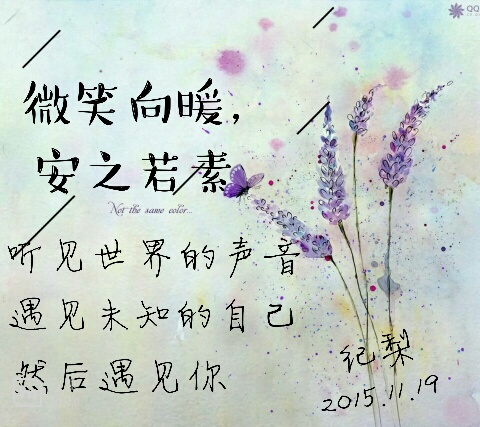 QQ
微笑向暖，
安之若素
Not the same color...
听见世界的声音
遇见未知的自己
然后遇见你
纪梨
2015.11.19